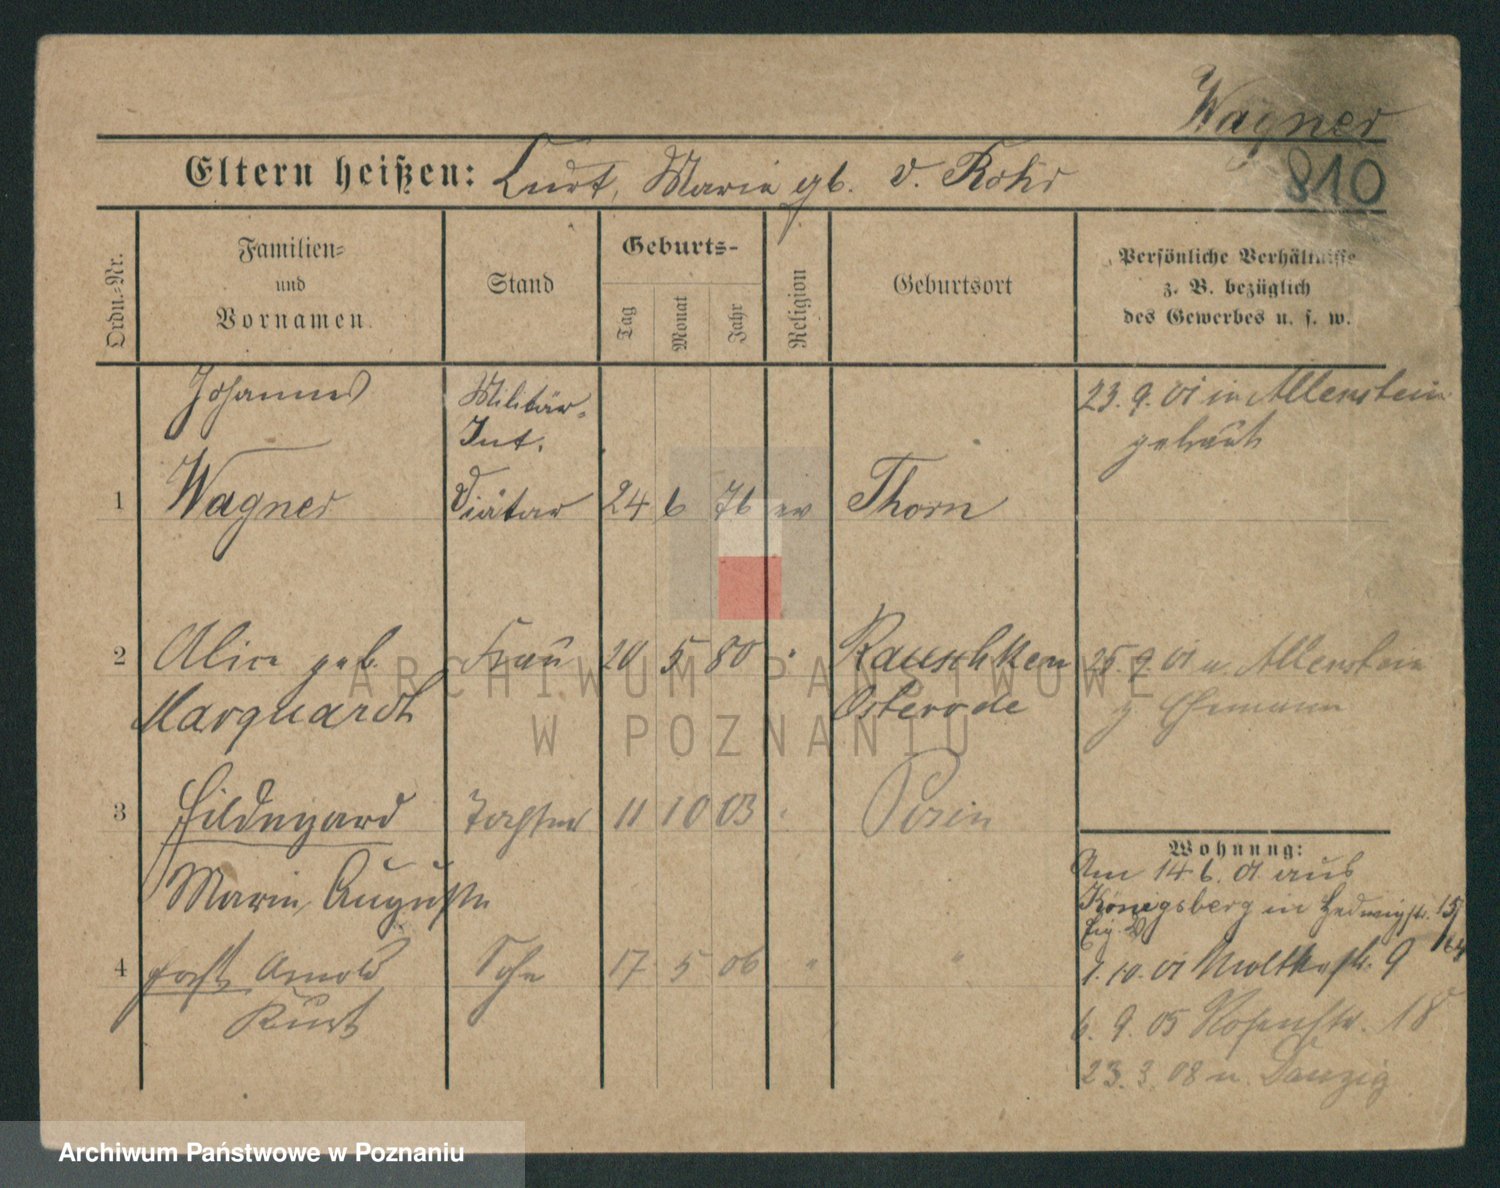 Wagner
810
Eltern heißen: Curt, Marie gb. v. Rohr
Ordn.-Nr.
Familien-
und
Vornamen.
Stand
Geburts-
Tag
Monat
Jahr
Religion
Geburtsort
Persönliche Verhältnisse
z. B. bezüglich
des Gewerbes u. s. w.
Johannes
Militär-
Int.
23. 9. 01 in Allenstein
getraut
1 Wagner Diätar 24 6 76 ev Thorn
2 Alice geb. Frau 20 5 80 " Rauschken 25. 9. 01 u. Allenstein
Marquardt Osterode
z. Ehemann
3 Hildegard Tochter 11 10 03 " Posen
Marie, Auguste
Wohnung:
Am 14 6. 01 aus
Königsberg in Hedwigstr. 15
4 Horst Arnold Sohn 17 5 06 " "
Kurt
1. 10. 01 Moltkestr. 9
6. 9. 05 Rosenstr. 18
23. 3. 08 n. Danzig
ARCHIWUM PAŃSTWOWE
W POZNANIU
Archiwum Państwowe w Poznaniu